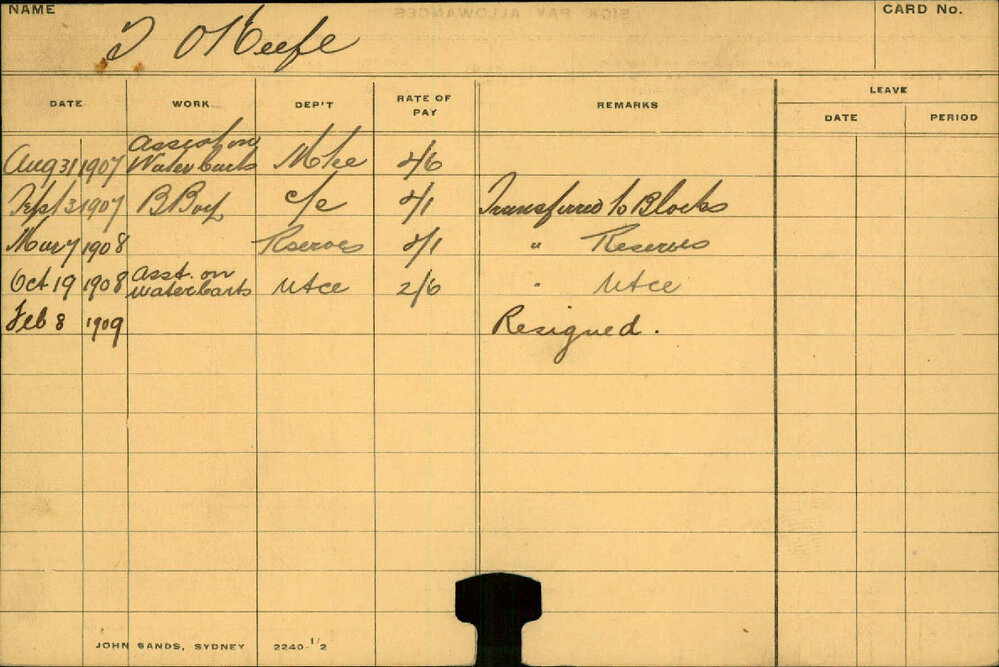 NAME
T O'Keefe
CARD No.
DATE WORK DEP'T RATE OF PAY REMARKS LEAVE
DATE PERIOD
Aug 31 1907 Assist on Watercarts Mtce 2/6
Sept 3 1907 B Boy C/e 2/1 Transferred to Blocks
May 7 1908 Reserves 2/1 " Reserves
Oct 19 1908 Asst. on watercarts Mtce 2/6 " Mtce
Feb 8 1909 Resigned.
JOHN SANDS, SYDNEY 2240-1/2